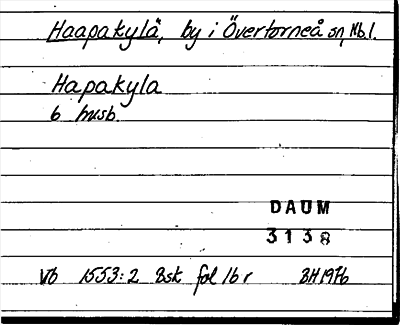 Haapakylä, by i Övertorneå sn, Nbl.
Hapakyla
6 husb.
DAUM
3138
Vb 1553:2 Bsk fol 16 r BH 1976